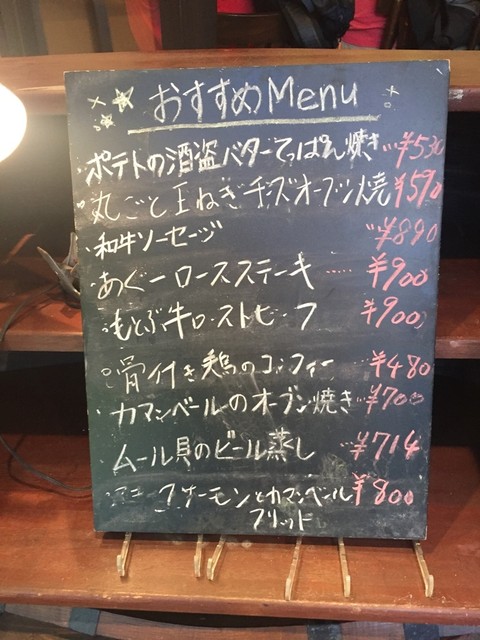 おすすめMenu
・ポテトの酒盗バターてっぱん焼き…¥530
・丸ごと玉ねぎチーズオーブン焼¥590
・和牛ソーセージ ¥890
・あぐーロースステーキ……¥900
・もとぶ牛ローストビーフ ¥900
骨付き鶏のコンフィー…¥480
・カマンベールのオーブン焼き…¥700
・ムール貝のビール蒸し …¥714
サーモンとカマンベール ¥800
フリット